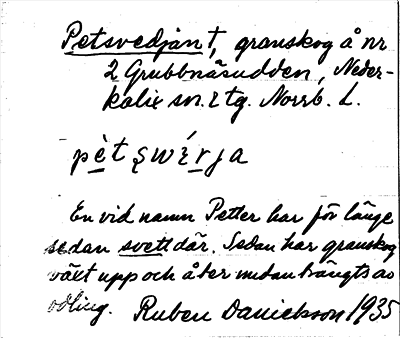 Petsvedjan †, granskog å nr
2 Grubbnäsudden, Neder-
kalix sn. o tg. Norrb. L.
En vid namn Petter har för länge
sedan svett där. Sedan har granskog
växt upp och åter undanträngts av
odling. Ruben Danielsson 1935